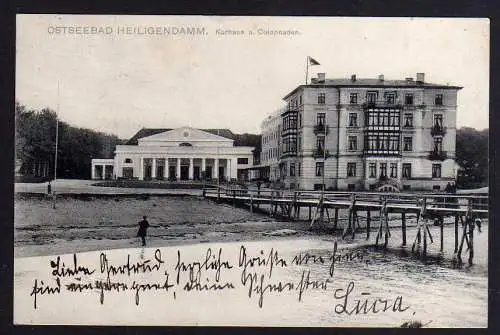 OSTSEEBAD HEILIGENDAMM. Kurhaus u. Colonnaden.
Liebe Gertrud, herzliche Grüße von hier
sind, deine Schwester
Lucia.